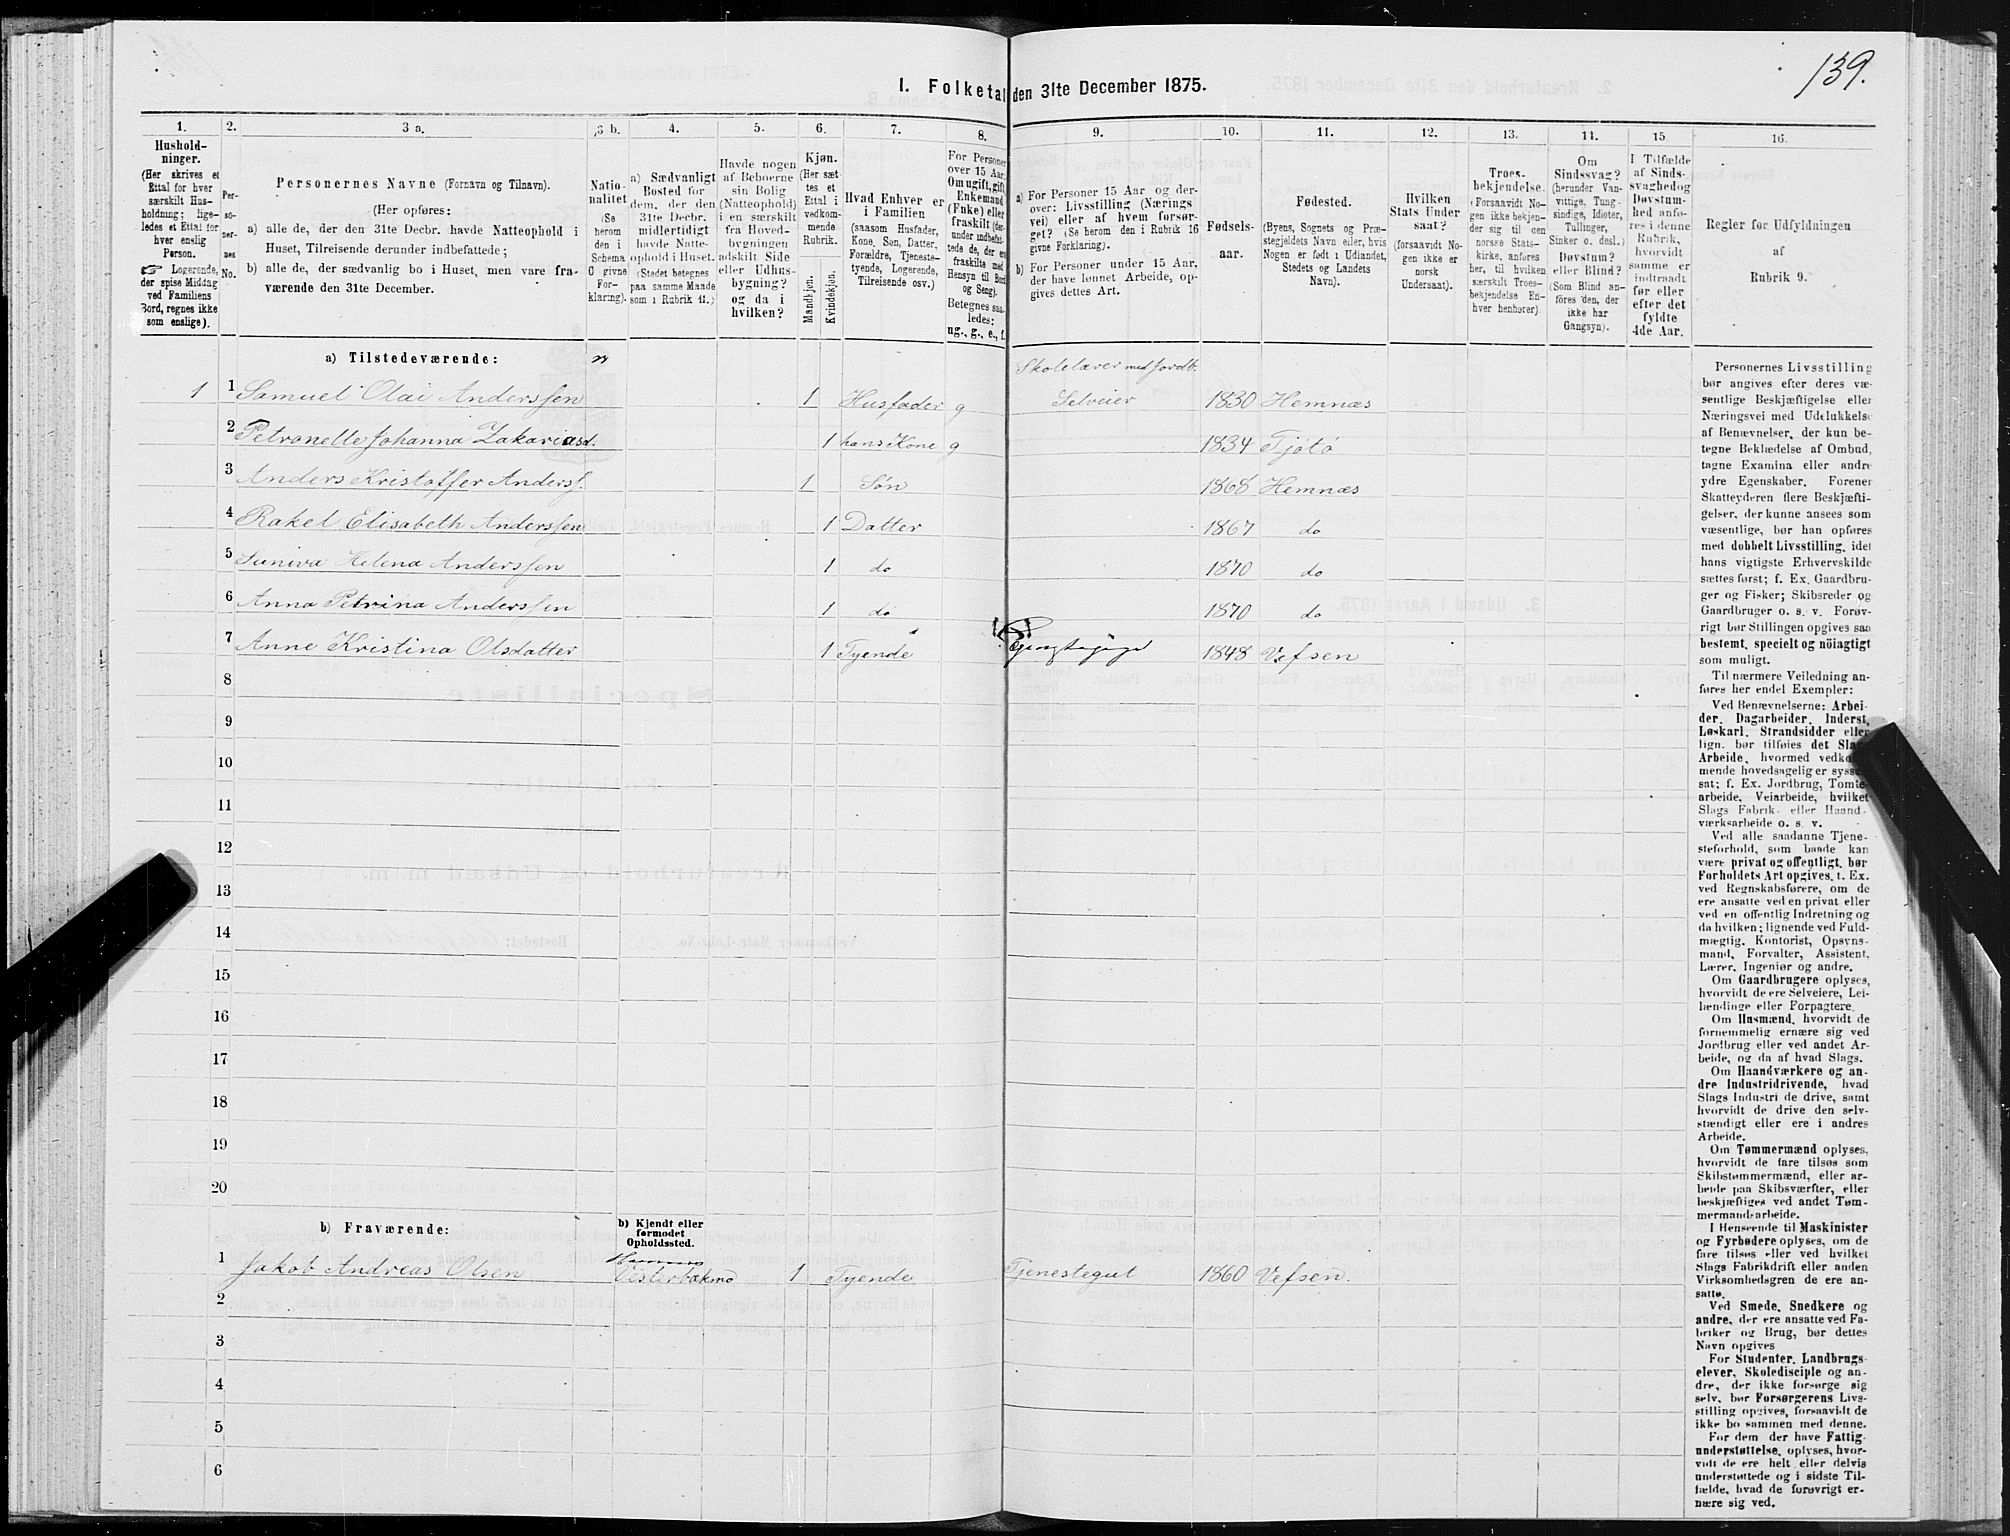 139.
I. Folketal den 31te December 1875.
1. 2. 3 a. 3 b. 4. 5. 6. 7. 8. 9. 10. 11. 12. 13. 14. 15. 16.
Hushold-
ninger.
(Her skrives et
Ettal for hver
særskilt Hus-
holdning; lige-
ledes et Ettal for
hver enslig
Person.
☞ Logerende,
der spise Middag
ved Familiens
Bord, regnes ikke
som enslige).
Per-
so-
ner-
nes
No.
Personernes Navne (Fornavn og Tilnavn).
(Her opføres:
a) alle de, der den 31te Decbr. havde Natteophold i
Huset, Tilreisende derunder indbefattede;
b) alle de, der sædvanlig bo i Huset, men vare fra-
værende den 31te December.
Natio-
nalitet
(Se
herom
den i
Schema
O givne
For-
klaring).
a) Sædvanligt
Bosted for
dem, der den
31te Decbr.
midlertidigt
havde Natte-
ophold i Huset.
(Stedet betegnes
paa samme Maade
som i Rubrik 11.)
Havde nogen
af Beboerne
sin Bolig
(Natteophold)
i en særskilt
fra Hoved-
bygningen
adskilt Side
eller Udhus-
bygning?
og da i
hvilken?
Kjøn.
(Her sæt-
tes et
Ettal i
vedkom-
mende
Rubrik.
Mandkjøn.
Kvindekjøn.
Hvad Enhver er
i Familien
(saasom Husfader,
Kone, Søn, Datter,
Forældre, Tjeneste-
tyende, Logerende,
Tilreisende osv.)
For Personer
over 15 Aar:
Om ugift, gift,
Enkemand
(Enke) eller
fraskilt (der-
under indbefat-
tede de, der ere
fraskilte med
Hensyn til Bord
og Seng).
Betegnes saa-
ledes:
ug., g., e., f.
a) For Personer 15 Aar og der-
over: Livsstilling (Nærings
vei) eller af hvem forsør-
get? (Se herom den i Rubrik 16
givne Forklaring).
b) For Personer under 15 Aar,
der have lønnet Arbeide, op-
gives dettes Art.
Fødsels-
aar.
Fødested.
(Byens, Sognets og Præ-
stegjeldets Navn eller, hvis
Nogen er født i Udlandet,
Stedets og Landets
Navn).
Hvilken
Stats Under
saat?
(forsaavidt No-
gen ikke er
norsk
Undersaat).
Troes-
bekjendelse.
(Forsaavidt No-
gen ikke bekjen-
der sig til den
norske Stats-
kirke, anføres
her, til hvilken
særskilt Troes-
bekjendelse En-
hver henhører).
Om
Sindssvag?
(herunder Van-
vittige, Tung-
sindige, Idioter,
Tullinger,
Sinker o. desl.)
Døvstum?
eller Blind?
(Som Blind an-
føres den, der
ikke har
Gangsyn).
I Tilfælde
af Sinds-
svaghedog
Døvstum-
hed anfø-
res i denne
Rubrik,
hvorvidt
samme er
indtraadt
før eller
efter det
fyldte
4de Aar.
Regler for Udfyldningen
af
Rubrik 9.
a) Tilstedeværende: n
1 1 Samuel Olai Anderssen 1 Husfader g Skolelærer med Jordb. Selveier 1830 Hemnæs
2 Petronelle Johanna Zakariasd. 1 hans Kone g 1834 Tjøtø
3 Anders Kristoffer Anderss. 1 Søn 1868 Hemnæs
4 Rakel Elisabeth Anderssen 1 Datter 1867 do
5 Suniva Helena Anderssen 1 do 1870 do
6 Anna Petrina Anderssen 1 do 1870 do
7 Anne Kristina Olsdatter 1 Tyende 1848 Vefsen
8
9
10
11
12
13
14
15
16
17
18
19
20
b) Fraværende: b) Kjendt eller
formodet
Opholdssted.
1 Jakob Andreas Olsen Vesterbækmo 1 Tyende Tjenestegut 1860 Vefsen.
2
3
4
5
6
Personernes Livsstilling
bør angives efter deres væ-
sentlige Beskjæftigelse eller
Næringsvei med Udelukkelse
af Benævnelser, der kun be-
tegne Beklædelse af Ombud,
tagne Examina eller andre
ydre Egenskaber. Forener
Skatteyderen flere Beskjæfti-
gelser, der kunne ansees som
væsentlige, bør han opføres
med dobbelt Livsstilling, idet
hans vigtigste Erhvervskilde
sættes først; f. Ex. Gaardbru-
ger og Fisker; Skibsreder og
Gaardbruger o. s. v. Forøv-
rigt bør Stillingen opgives saa
bestemt, specielt og nöiagtigt
som muligt.
Til nærmere Veiledning an-
føres her endel Exempler:
Ved Benævnelserne: Arbei-
der, Dagarbeider, Inderst,
Løskarl, Strandsidder eller
lign. bør tilføies det Slags
Arbeide, hvormed vedkom-
mende hovedsagelig er syssel-
sat; f. Ex. Jordbrug, Tomte-
arbeide, Veiarbeide, hvilket
Slags Fabrik- eller Haand-
værksarbeide o. s. v.
Ved alle saadanne Tjene-
steforhold, som baade kan
være privat og offentligt, bør
Forholdets Art opgives, t. Ex.
ved Regnskabsførere, om de
ere ansatte ved en privat eller
ved en offentlig Indretning og
da hvilken; lignende ved Fuld-
mægtig, Kontorist, Opsyns-
mand, Forvalter, Assistent,
Lærer, Ingeniør og andre.
Om Gaardbrugere oplyses,
hvorvidt de ere Selveiere, Lei-
lændinge eller Forpagtere.
Om Husmænd, hvorvidt de
fornemmelig ernære sig ved
Jordbrug eller ved andet Ar-
beide, og da af hvad Slags.
Om Haandværkere og an-
dre Industridrivende, hvad
Slags Industri de drive, samt
hvorvidt de drive den selv-
stændigt eller ere i andres
Arbeide.
Om Tømmermænd oplyses,
hvorvidt de fare tilsøs som
Skibstømmermænd, eller ar-
beide paa Skibsværfter, eller
beskjæftiges ved andet Tøm-
mermandsarbeide.
I Henseende til Maskinister
og Fyrbødere oplyses, om de
fare tilsøs eller ved hvilket
Slags Fabrikdrift eller anden
Virksomhedsgren de ere an-
satte.
Ved Smede, Snedkere og
andre, der ere ansatte ved Fa-
briker og Brug, bør dettes
Navn opgives
For Studenter, Landbrugs-
elever, Skoledisciple og an-
dre, der ikke forsørge sig
selv, bør Forsørgerens Livs-
stilling opgives, forsaavidt de
ikke bo sammen med denne.
For dem der have Fattig-
understøttelse, oplyses, hvor-
vidt de ere helt eller delvis
understøttede og i sidste Til-
fælde, hvad de forøvrigt er-
nære sig ved.